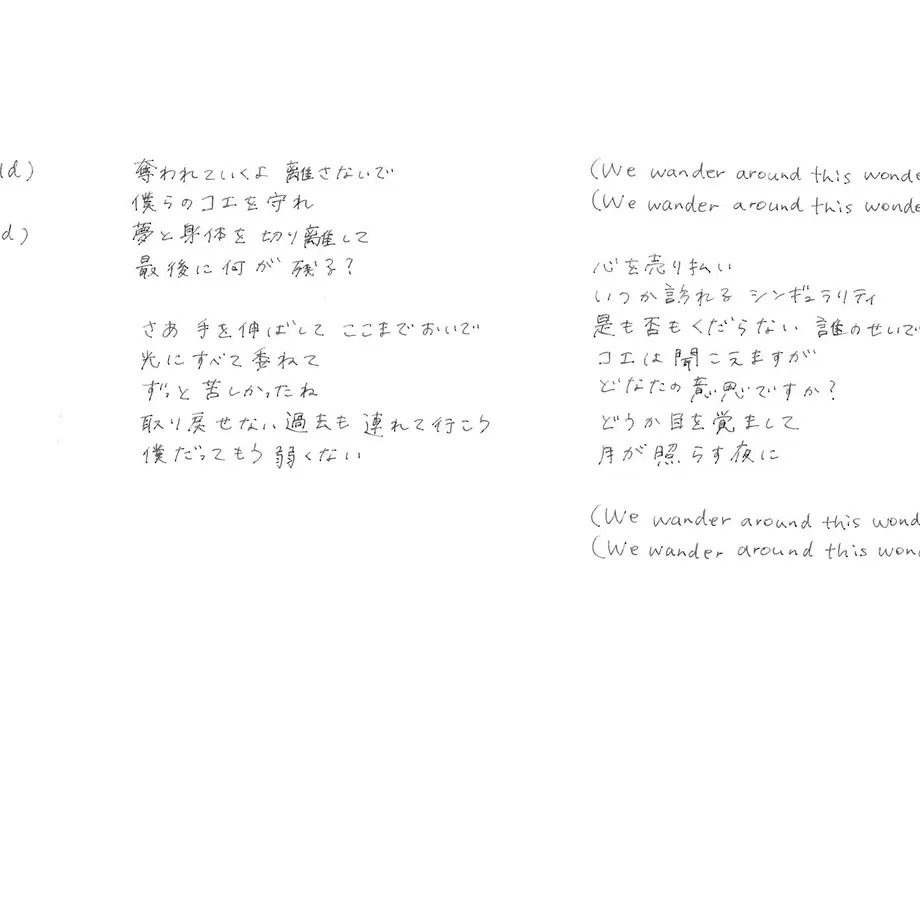 ld)
d)
奪われていくよ 離さないで
僕らのコエを守れ
夢と身体を切り離して
最後に何が残る?
さあ 手を伸ばして ここまでおいで
光にすべて委ねて
ずっと苦しかったね
取り戻せない過去も 連れて行こう
僕だってもう弱くない
(We wander around this wonde
(We wander around this wonde
心を売り払い
いつか訪れる シンギュラリティ
是も否もくだらない 誰のせいで
コエは聞こえますが
どなたの意思ですか?
どうか目を覚まして
月が照らす夜に
(We wander around this wond
(We wander around this won